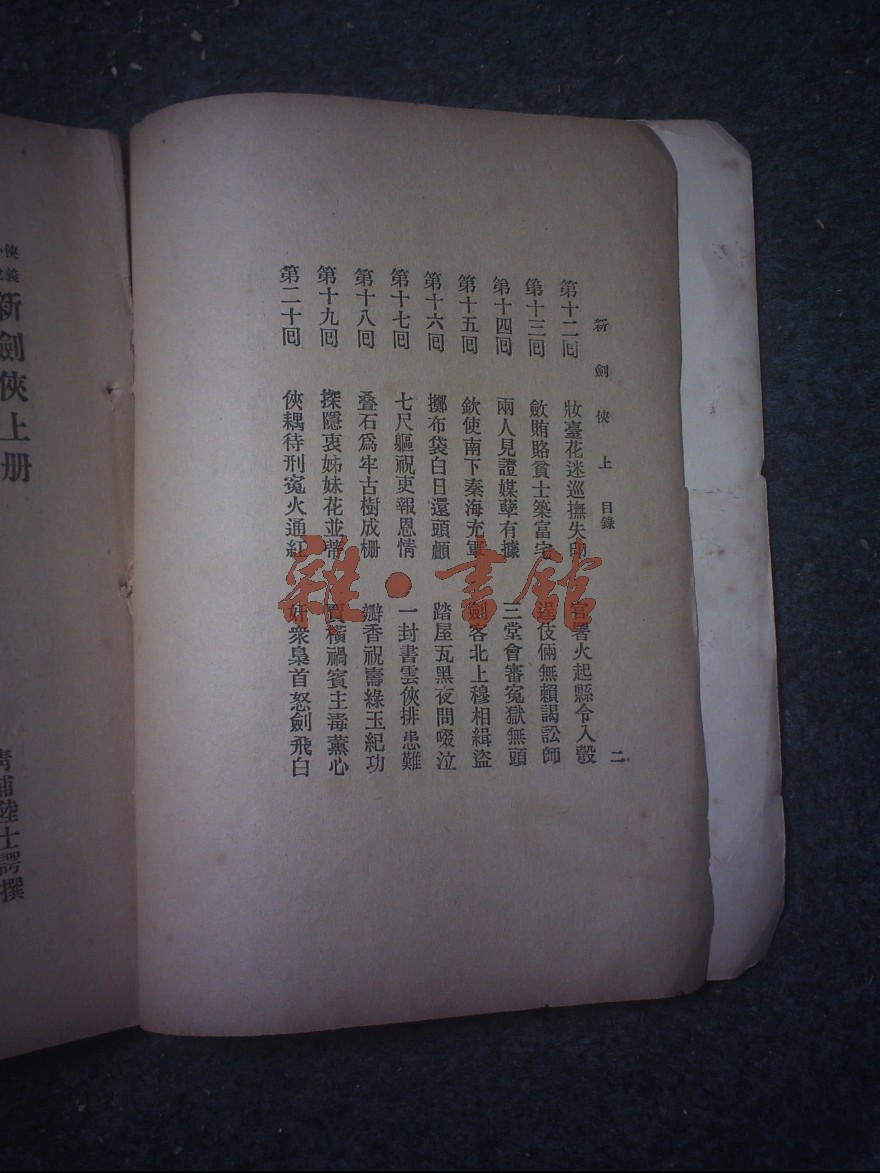 新劍俠上 目錄 二
第十二回 妝臺花迷巡撫失印 官署火起縣令入彀
第十三回 斂賄賂貧士築富宅 逞伎倆無賴謁訟師
第十四回 兩人見證媒孽有據 三堂會審冤獄無頭
第十五回 欽使南下秦海充軍 劍客北上穆相緝盜
第十六回 擲布袋白日還頭顱 踏屋瓦黑夜問啜泣
第十七回 七尺軀祝吏報恩情 一封書雲俠排患難
第十八回 叠石爲牢古樹成柵 瓣香祝壽綠玉紀功
第十九回 探隱衷姊妹花並蒂 賈橫禍賓主毒薰心
第二十回 俠耦待刑冤火通紅 奸衆梟首怒劍飛白
雜·書館
俠義
新劍俠上册
青浦陸士諤撰